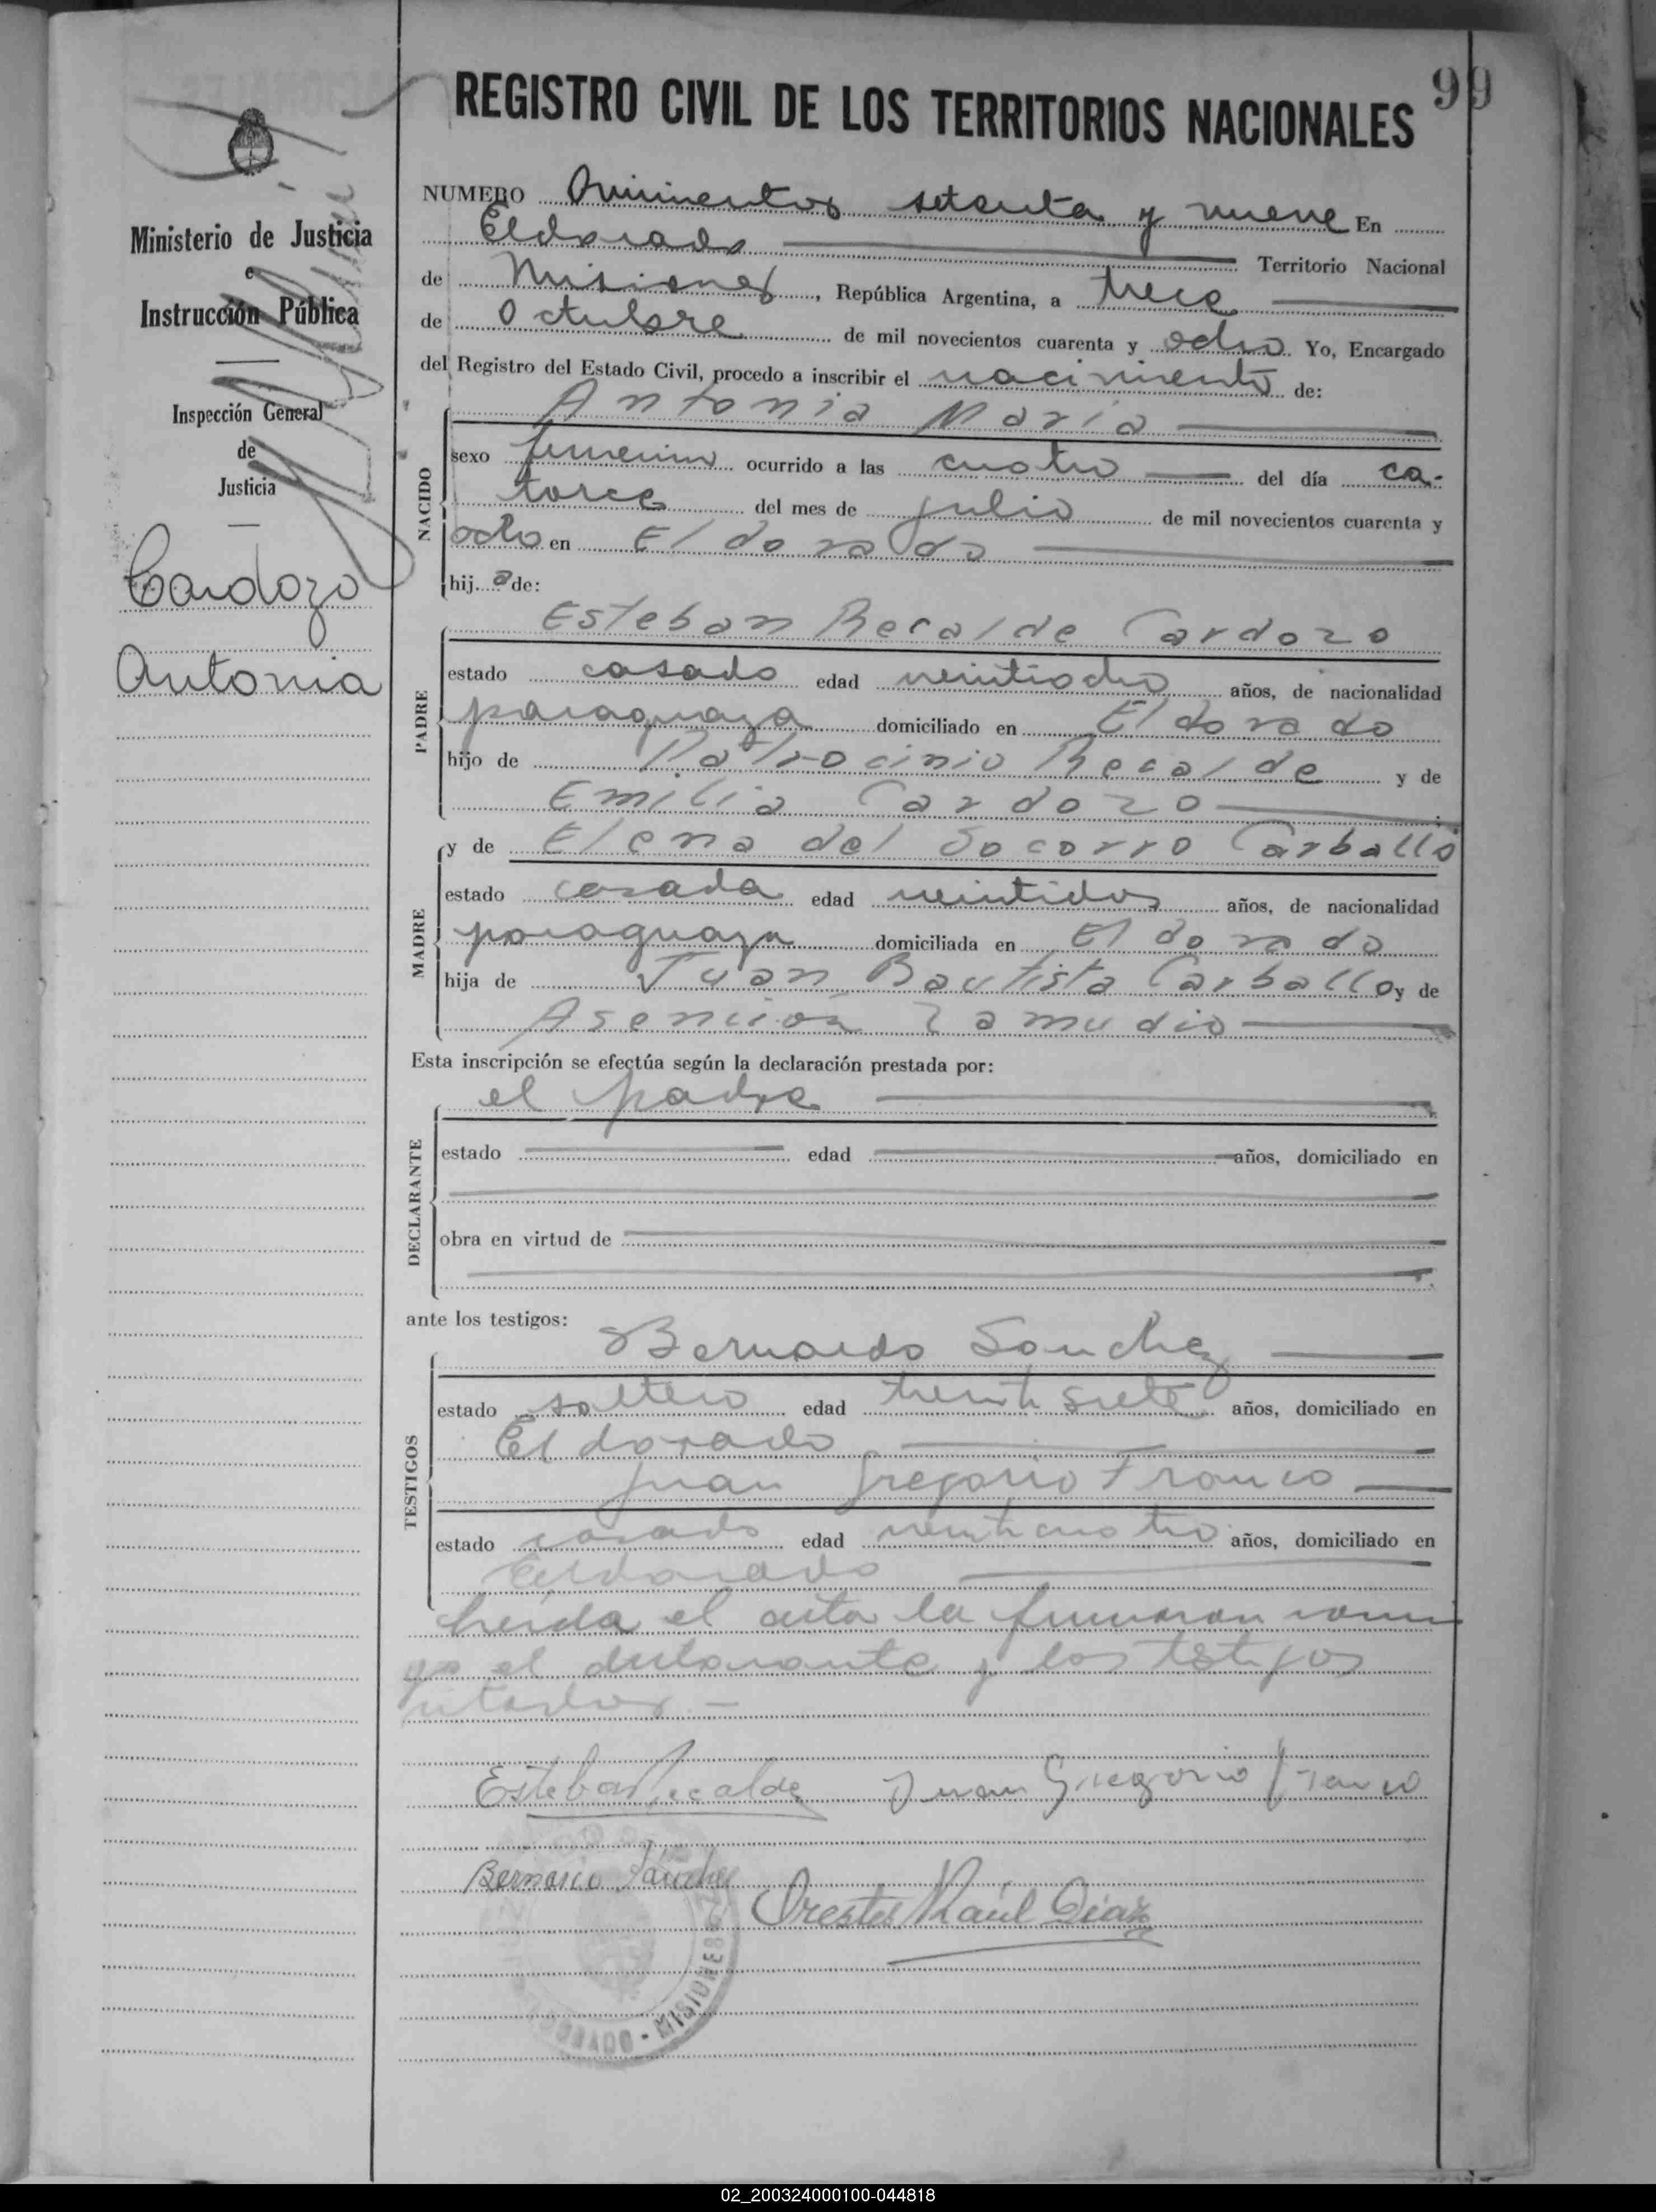 99
REGISTRO CIVIL DE LOS TERRITORIOS NACIONALES
Ministerio de Justicia
e
Instrucción Pública
Inspección General
de
Justicia
Cardozo
Antonia
NUMERO Quinientos setenta y nueve En
Eldorado Territorio Nacional
de Misiones, República Argentina, a trece
de Octubre de mil novecientos cuarenta y ocho Yo, Encargado
del Registro del Estado Civil, procedo a inscribir el nacimiento de:
Antonia Maria
NACIDO
sexo femenino ocurrido a las cuatro del día ca-
torce del mes de julio de mil novecientos cuarenta y
ocho en Eldorado
hij a de:
Esteban Recalde Cardozo
PADRE
estado casado edad veintiocho años, de nacionalidad
paraguaya domiciliado en Eldorado
hijo de Patrocinio Recalde y de
Emilia Cardozo
y de Elena del Socorro Carballo
MADRE
estado casada edad veintidos años, de nacionalidad
paraguaya domiciliada en Eldorado
hija de Juan Bautista Carballo y de
Asención Zamudio
Esta inscripción se efectúa según la declaración prestada por:
el padre
DECLARANTE
estado edad años, domiciliado en
obra en virtud de
ante los testigos:
Bernardo Sanchez
TESTIGOS
estado soltero edad treinta siete años, domiciliado en
Eldorado
Juan Gregorio Franco
estado casado edad veinticuatro años, domiciliado en
Eldorado
Leída el acta la firmaron conmi
go el declarante y los testigos
citados.-
Esteban Recalde Juan Gregorio Franco
Bernardo Sánchez Orestes Raúl Diaz
ELDORADO - MISIONES
02_200324000100-044818